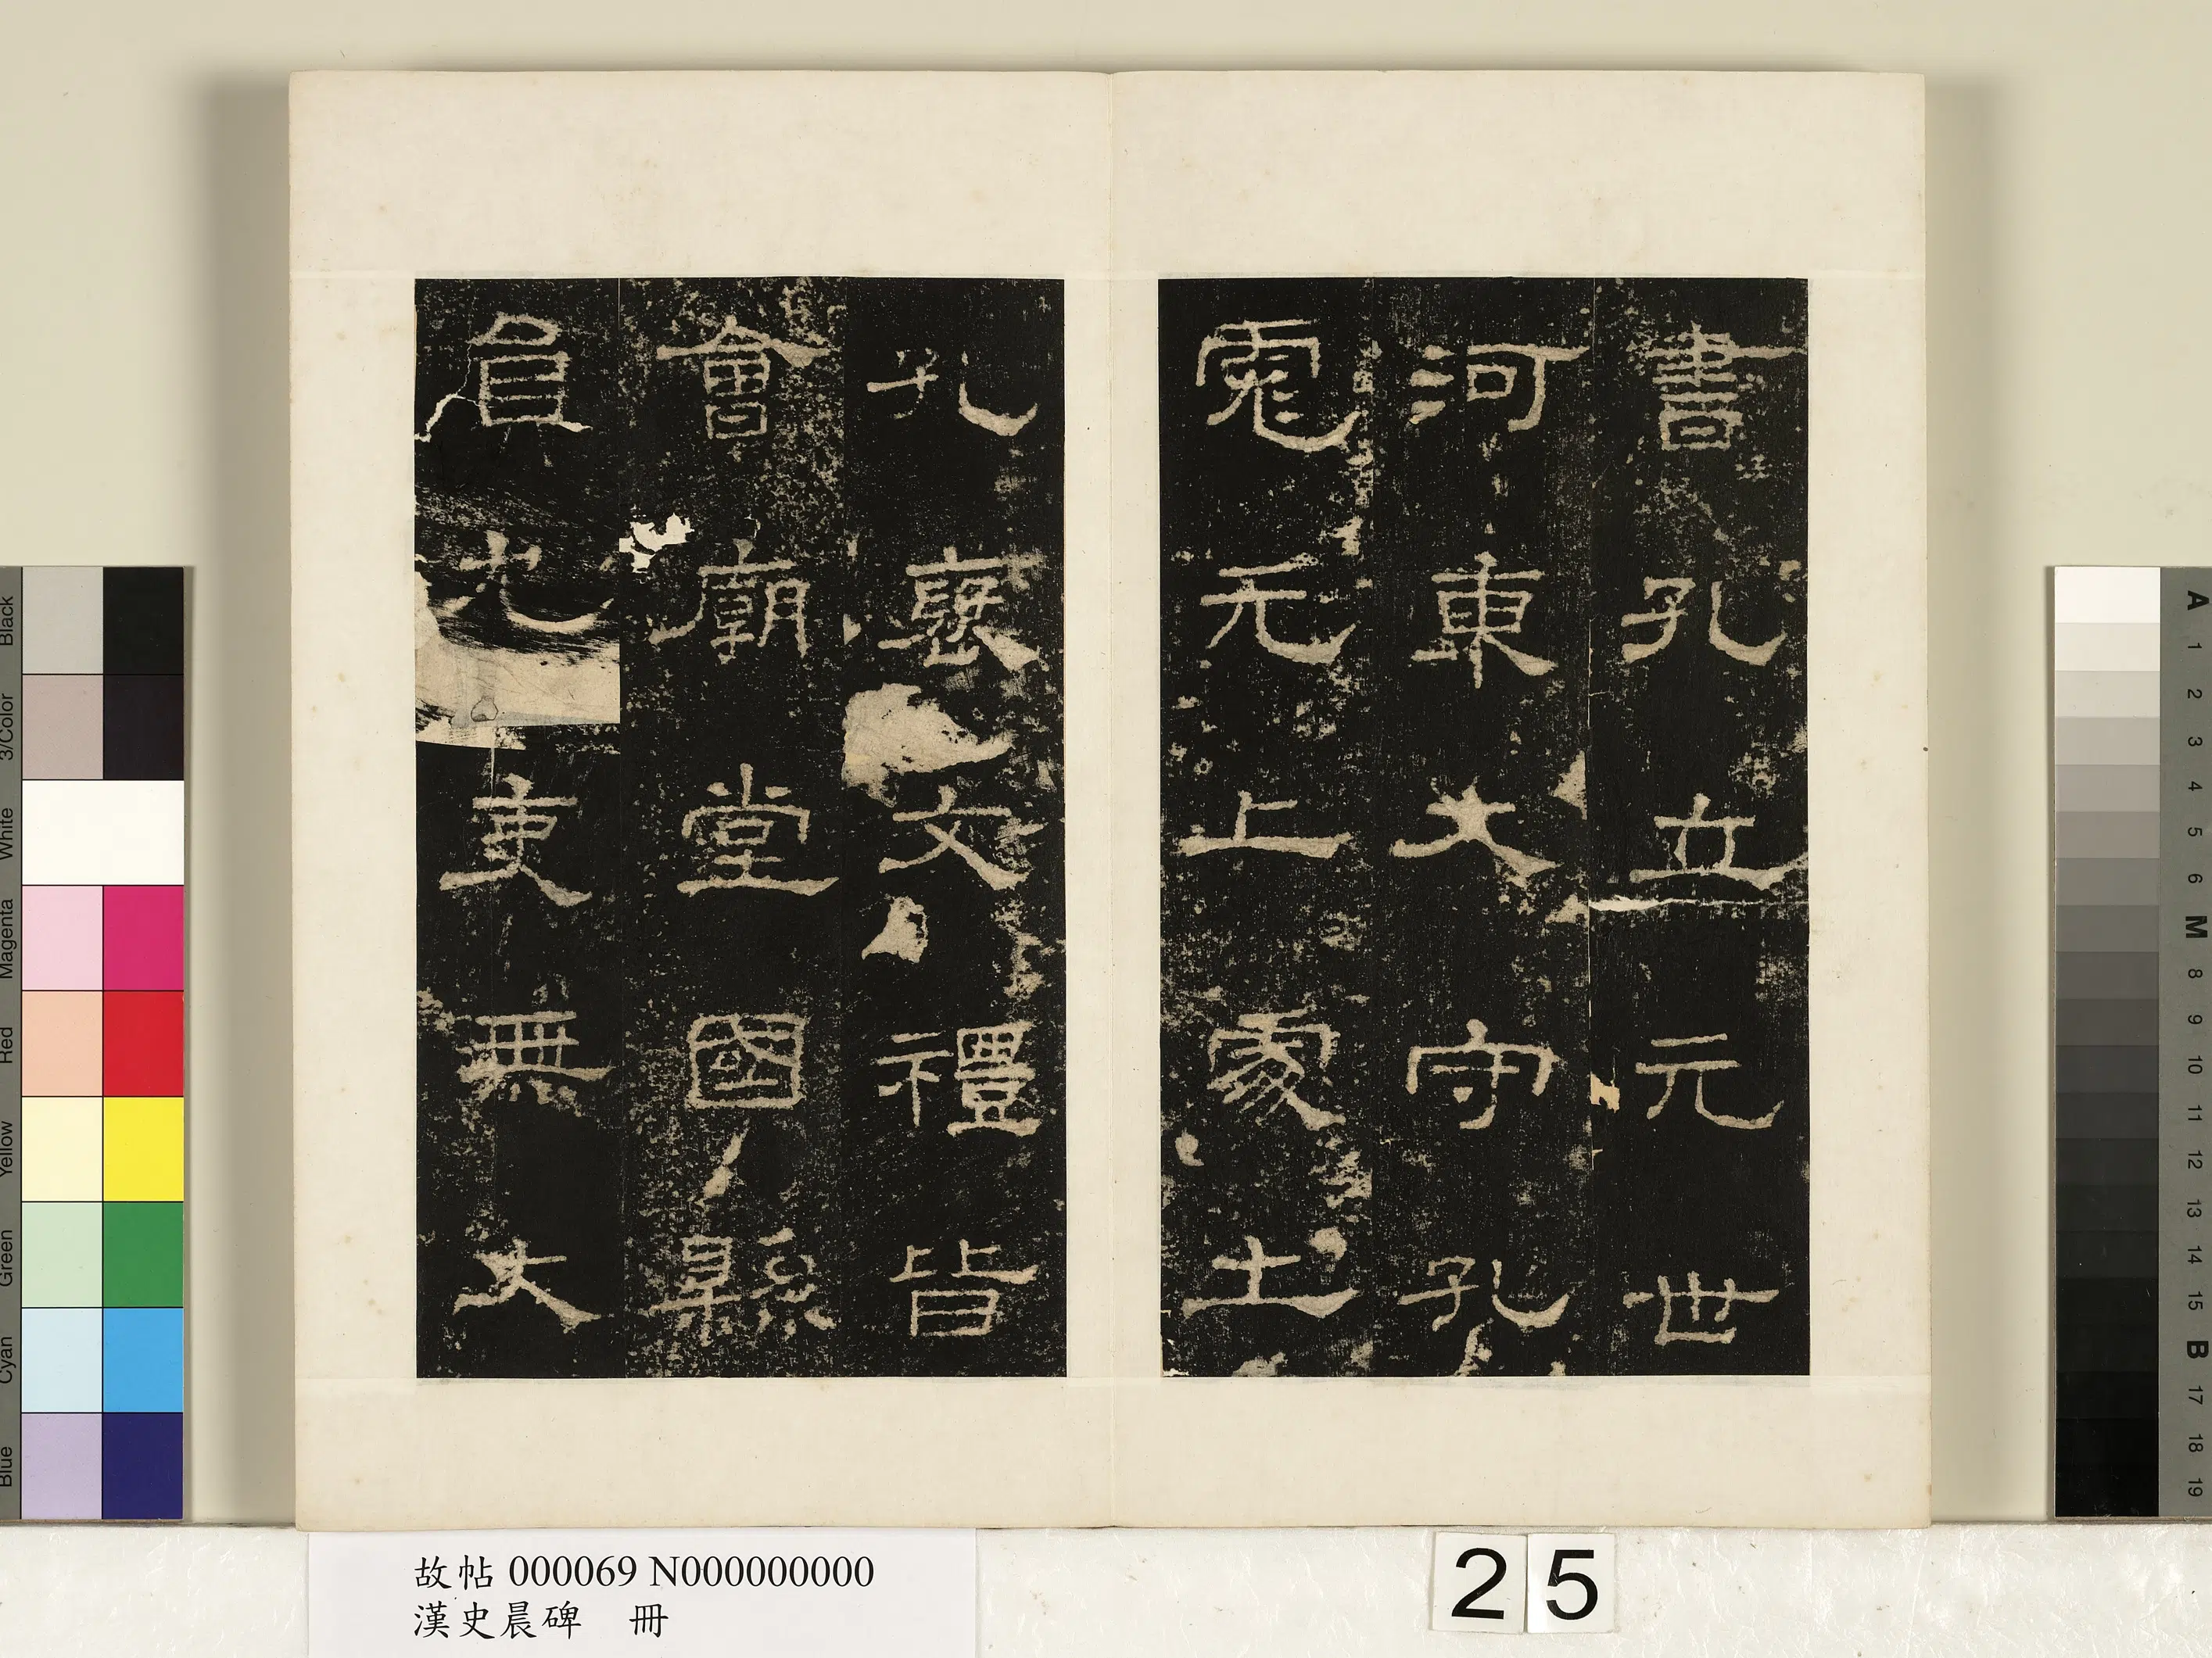 書孔立元世
河東大守孔
彪元上處士
孔褒文禮皆
會廟堂國縣
員冗吏無大
故帖 000069 N000000000
漢史晨碑 冊
25
Black
3/Color
White
Magenta
Red
Yellow
Green
Cyan
Blue
A 1 2 3 4 5 6 M 8 9 10 11 12 13 14 15 B 17 18 19